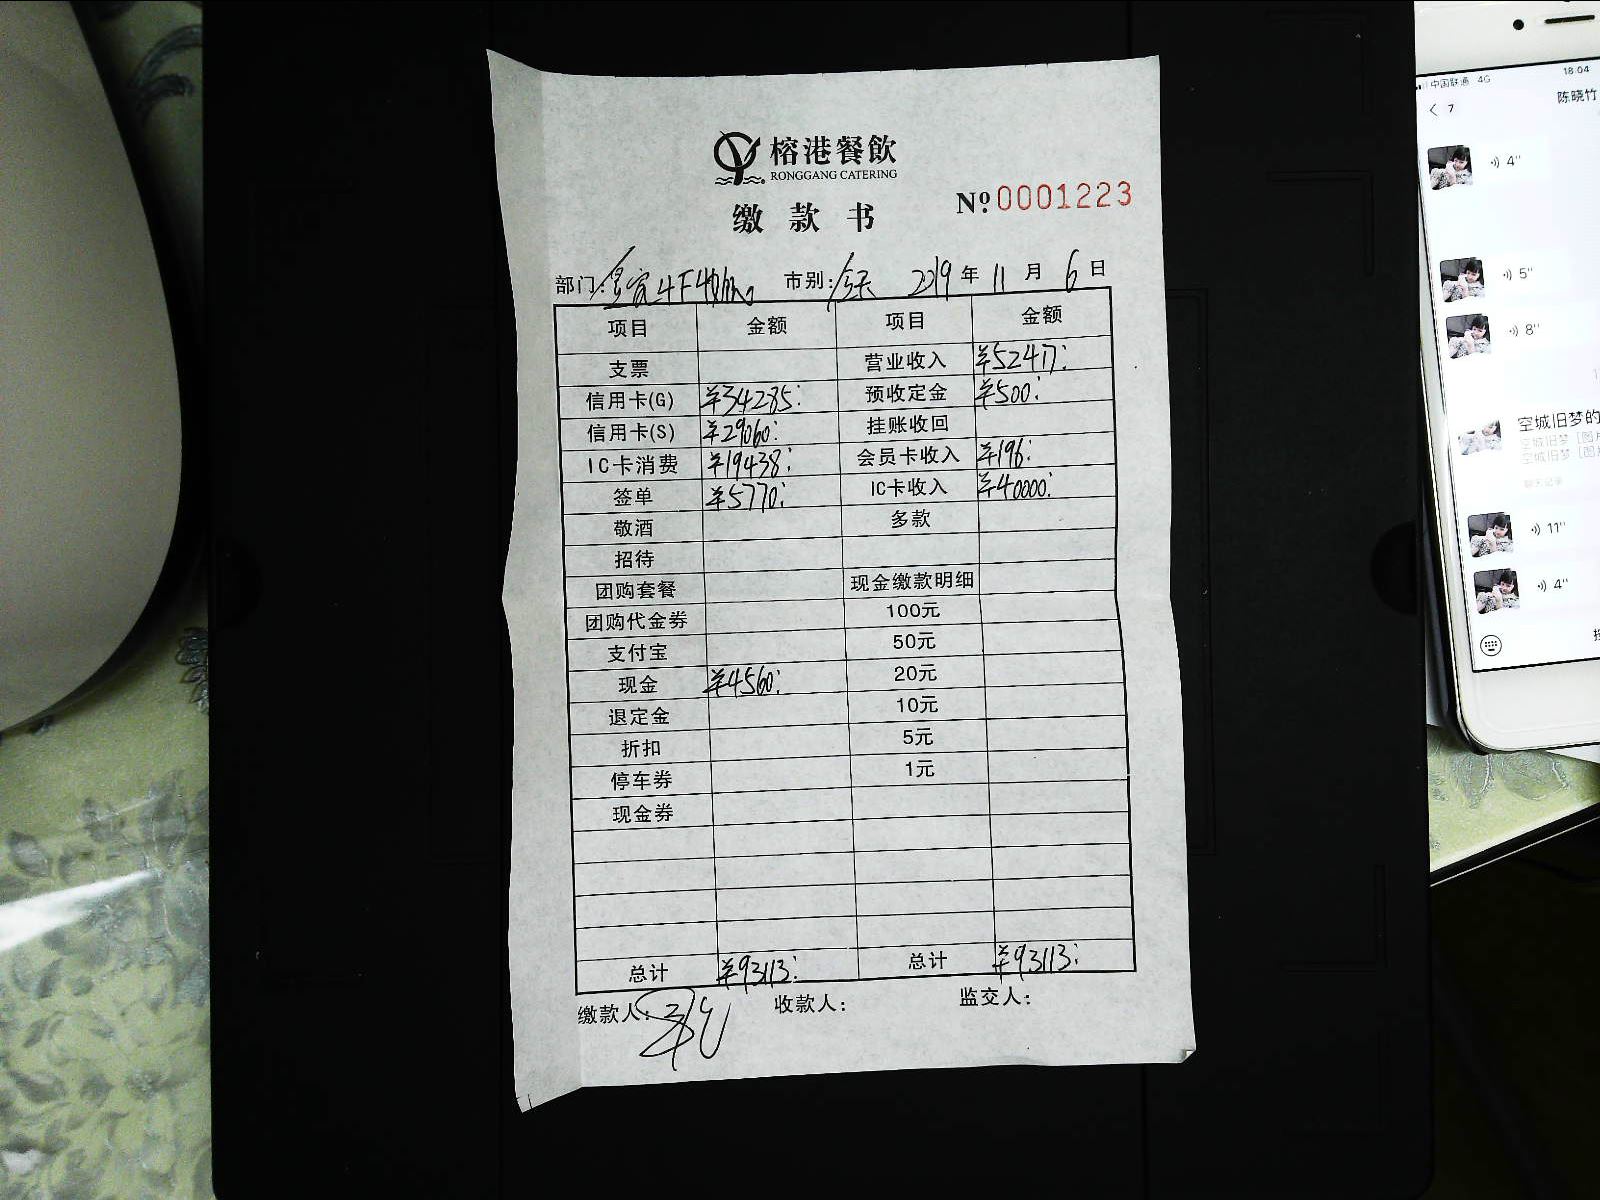 榕港餐飲
RONGGANG CATERING
缴款书
№ 0001223
部门: 4F 市别: 全天 2019年11月6日
项目 金额 项目 金额
支票 营业收入 ¥52417:
信用卡(G) ¥34285: 预收定金 ¥500:
信用卡(S) ¥29060: 挂账收回
IC卡消费 ¥19438: 会员卡收入 ¥196:
签单 ¥5770: IC卡收入 ¥40000:
敬酒 多款
招待
团购套餐 现金缴款明细
团购代金券 100元
支付宝 50元
现金 ¥4560: 20元
退定金 10元
折扣 5元
停车券 1元
现金券
总计 ¥93113: 总计 ¥93113:
缴款人: 收款人: 监交人:
中国联通 4G 18:04
7 陈晓竹
4"
5"
8"
空城旧梦的
空城旧梦 [图片
空城旧梦 [图片
聊天记录
11"
4"